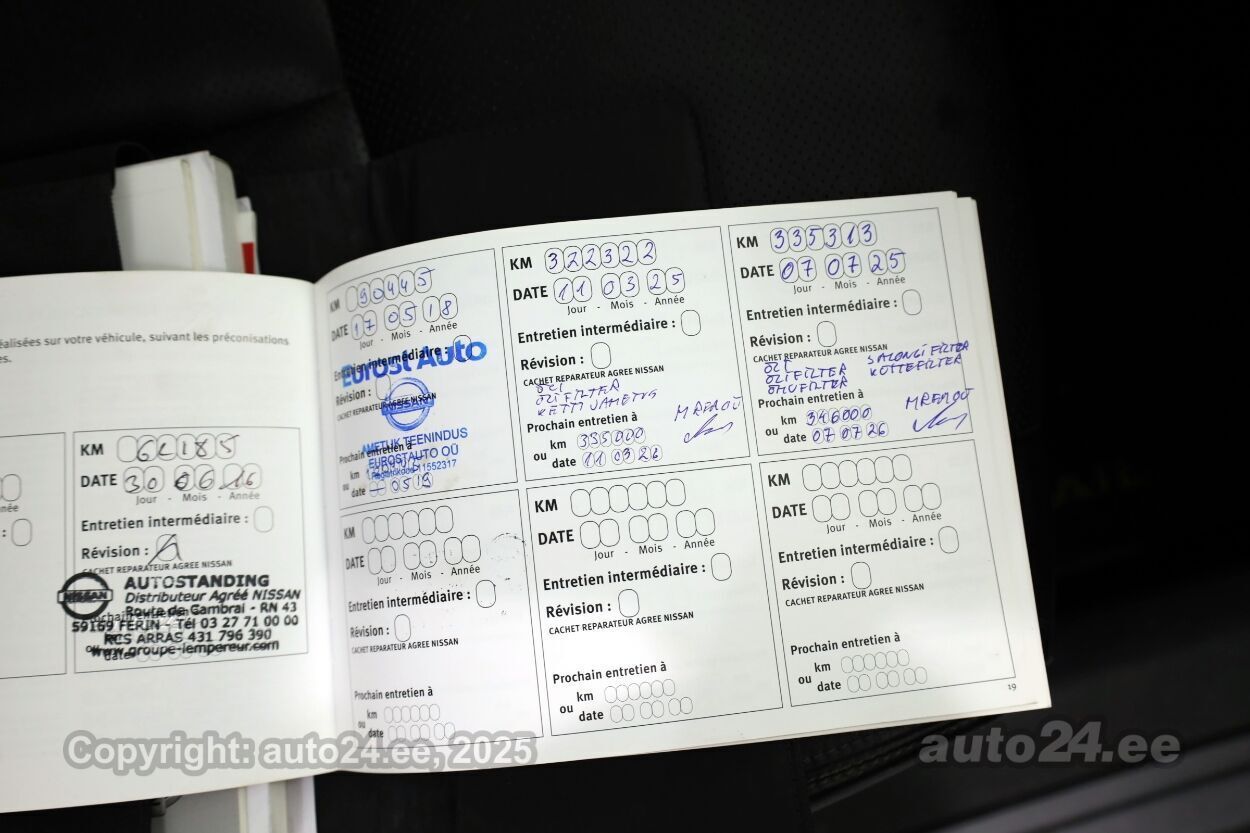 éalisées sur votre véhicule, suivant les préconisations
es.
née
:
KM 62185
DATE 30 06 16
Jour - Mois - Année
Entretien intermédiaire :
Révision :
CACHET REPARATEUR AGREE NISSAN
NISSAN
AUTOSTANDING
Distributeur Agréé NISSAN
Route de Cambrai - RN 43
59169 FERIN - Tél 03 27 71 00 00
RCS ARRAS 431 796 390
www.groupe-lempereur.com
date
KM 90445
DATE 17 05 18
Jour - Mois - Année
Entretien intermédiaire :
Eurost Auto
Révision :
CACHET REPARATEUR AGREE NISSAN
NISSAN
AMETLIK TEENINDUS
Prochain entretien à
EUROSTAUTO OÜ
km
Registrikood 11552317
ou
date 05 19
KM 322322
DATE 11 03 25
Jour - Mois - Année
Entretien intermédiaire :
Révision :
CACHET REPARATEUR AGREE NISSAN
ÕLI
ÕLIFILTER
KETTI VAHETUS
Prochain entretien à
km 335000
ou
date 11 03 26
KM 335313
DATE 07 07 25
Jour - Mois - Année
Entretien intermédiaire :
Révision :
CACHET REPARATEUR AGREE NISSAN
ÕLI SALONGI FILTER
ÕLIFILTER KÜTTEFILTER
ÕHUFILTER
Prochain entretien à
km 346000
ou
date 07 07 26
KM
DATE
Jour - Mois - Année
Entretien intermédiaire :
Révision :
CACHET REPARATEUR AGREE NISSAN
Prochain entretien à
km
ou
date
KM
DATE
Jour - Mois - Année
Entretien intermédiaire :
Révision :
CACHET REPARATEUR AGREE NISSAN
Prochain entretien à
km
ou
date
KM
DATE
Jour - Mois - Année
Entretien intermédiaire :
Révision :
CACHET REPARATEUR AGREE NISSAN
Prochain entretien à
km
ou
date
19
Copyright: auto24.ee, 2025
auto24.ee